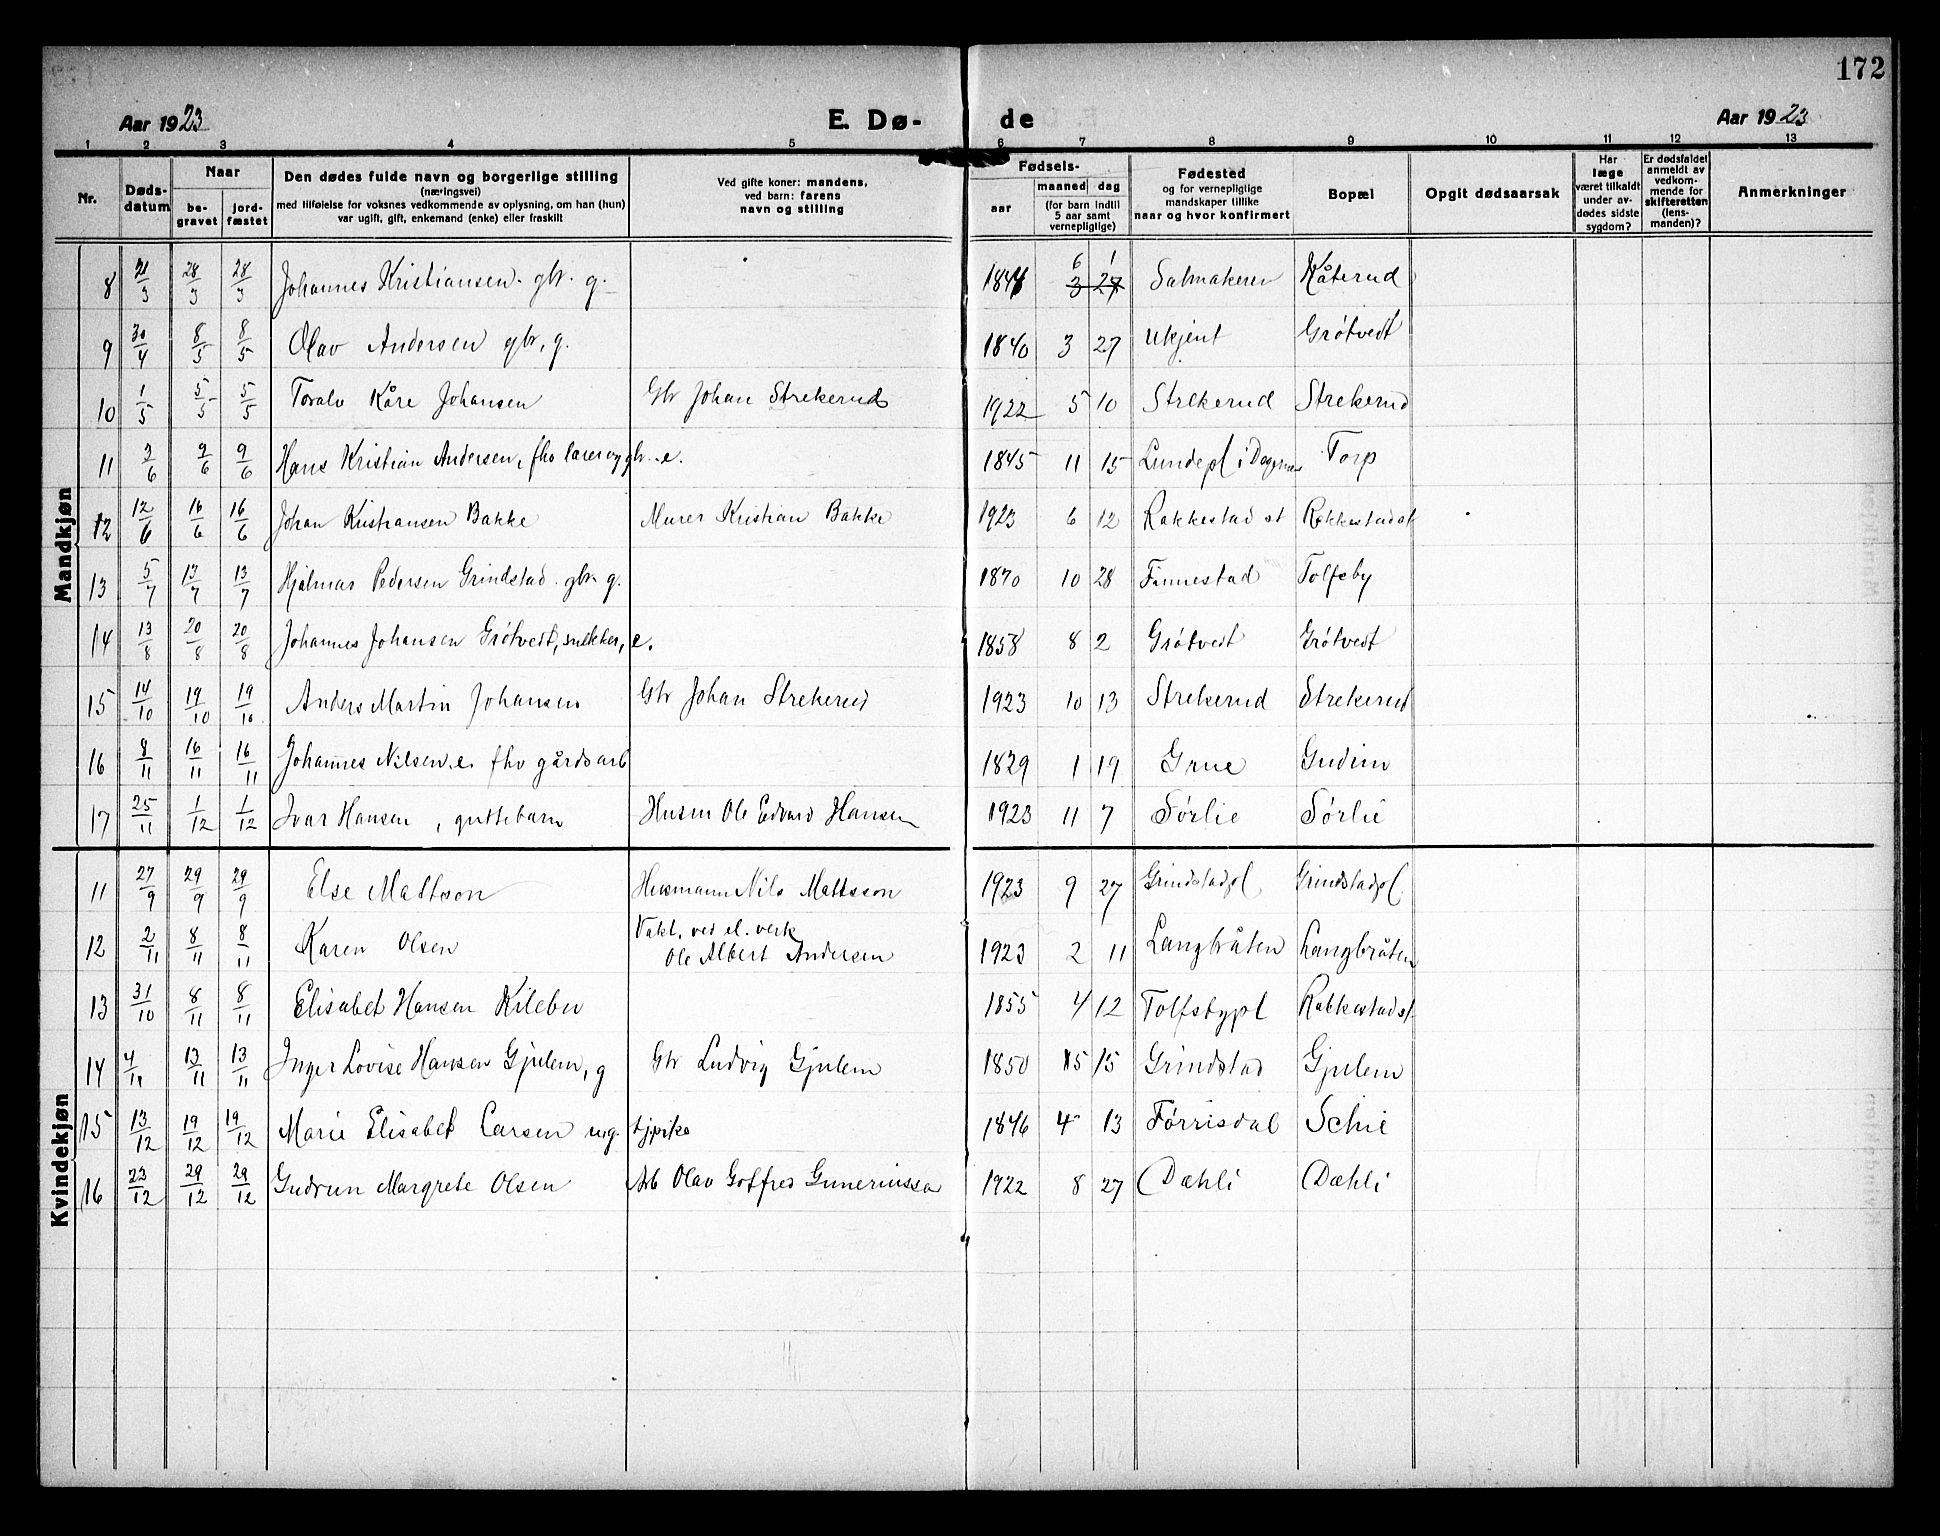 172
Aar 1923 E. Dø- de Aar 1923
1 2 3 4 5 6 7 8 9 10 11 12 13
Nr. Døds-datum Naar be-gravet jord-fæstet
Den dødes fulde navn og borgerlige stilling (næringsvei) med tilføielse for voksnes vedkommende av oplysning, om han (hun) var ugift, gift, enkemand (enke) eller fraskilt
Ved gifte koner: mandens, ved barn: farens navn og stilling
Fødsels- aar maaned dag (for barn indtil 5 aar samt vernepligtige)
Fødested og for vernepligtige mandskaper tillike naar og hvor konfirmert
Bopæl
Opgit dødsaarsak
Har læge været tilkaldt under av-dødes sidste sygdom?
Er dødsfaldet anmeldt av vedkom-mende for skifteretten (lens-manden)?
Anmerkninger
Mandkjøn
8 21/3 28/3 28/3 Johannes Kristiansen. gbr. g. 1844 6 1 3 27 Salmakeren Kåterud
9 30/4 8/5 8/5 Olav Andersen gbr, g. 1840 3 27 ukjent Grøtvedt
10 1/5 5/5 5/5 Toralv Kåre Johansen Gbr Johan Strekerud 1922 5 10 Strekerud Strekerud
11 3/6 9/6 9/6 Hans Kristian Andersen, fhv lærer og gbr. e. 1845 11 15 Lundepl i Torp
12 12/6 16/6 16/6 Johan Kristiansen Bakke Murer Kristian Bakke 1923 6 12 Rakkestad st Rakkestad st
13 5/7 13/7 13/7 Hjalmar Pedersen Grindstad. gbr. g. 1870 10 28 Finnestad Tolfsby
14 13/8 20/8 20/8 Johannes Johansen Grøtvedt, snekker, e. 1858 8 2 Grøtvedt Grøtvedt
15 14/10 19/10 19/10 Anders Martin Johansen Gbr Johan Strekerud 1923 10 13 Strekerud Strekerud
16 8/11 16/11 16/11 Johannes Nilsen. e. fhv gårdsarb 1829 1 19 Grue Gudim
17 25/11 1/12 1/12 Ivar Hansen, guttebarn Husm Ole Edvard Hansen 1923 11 7 Sørlie Sørlie
Kvindekjøn
11 27/9 29/9 29/9 Else Mattsson Husmann Nils Mattsson 1923 9 27 Grindstadpl Grindstadpl.
12 2/11 8/11 8/11 Karen Olsen Vakt. ved el. verk Ole Albert Andersen 1923 2 11 Langbråten Langbråten
13 31/10 8/11 8/11 Elisabet Hansen Kilebu 1855 4 12 Tolfsbypl Rakkestad st
14 4/11 13/11 13/11 Inger Lovise Hansen Gjulem, g Gbr Ludvig Gjulem 1850 5 15 Grindstad Gjulem
15 13/12 19/12 19/12 Marie Elisabet Larsen ug. tjpike 1846 4 13 Førrisdal Schie
16 23/12 29/12 29/12 Gudrun Margrete Olsen Arb Olav Gotfred Gunerius 1922 8 27 Dæhli Dæhli